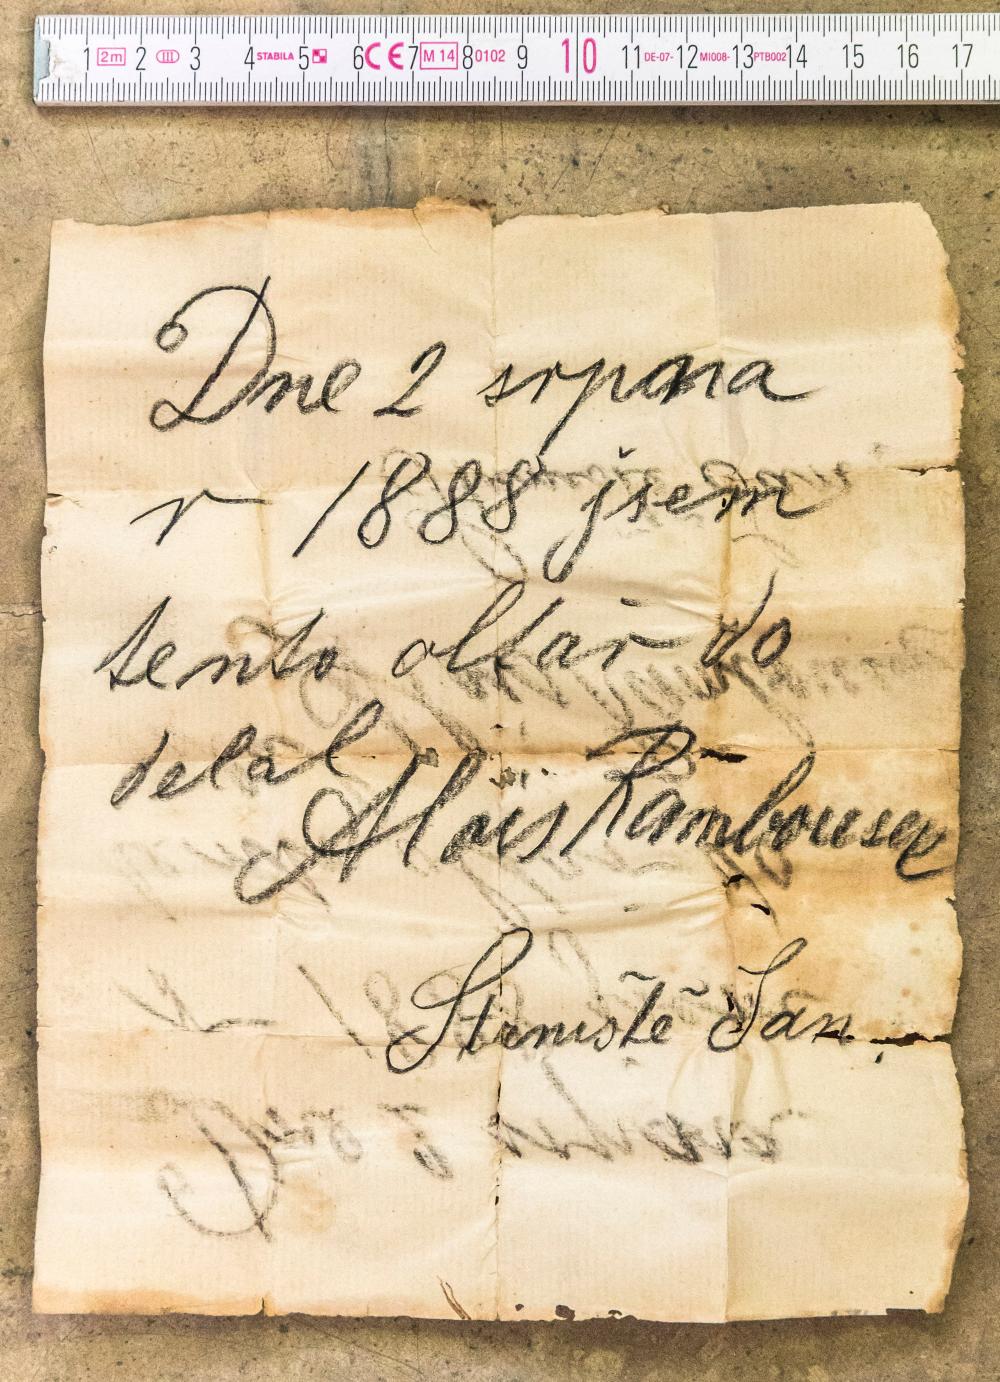 1 2m 2 III 3 4 STABILA 5 6 CE 7 M 14 8 0102 9 10 11 DE-07- 12 MI008- 13 PTB002 14 15 16 17
Dne 2 srpna
r 1888 jsem
tento oltař do
delal
Alois Rambousek
Stěniště Jan.